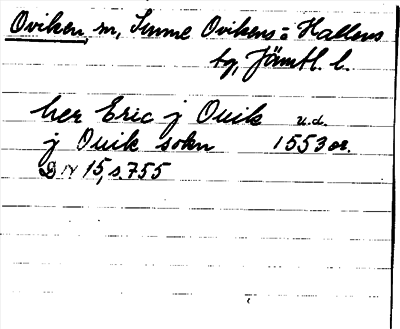 Oviken, sn, Sunne Ovikens o Hallens
tg, Jämtl. l.
her Eric j Ouik u.d.
j Ouik sokn 1553 or.
DN 15, s. 755